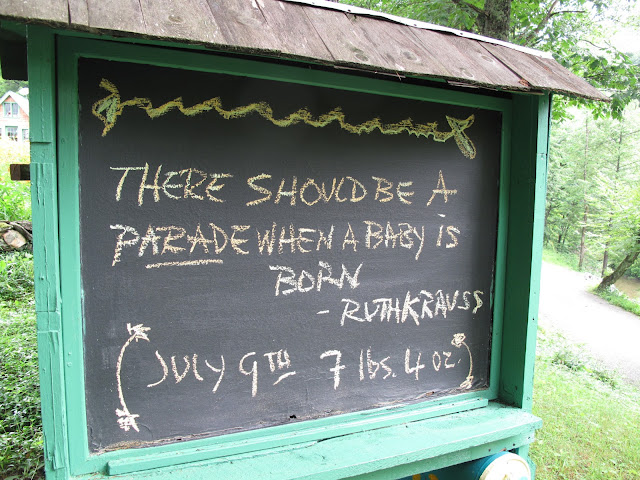 THERE SHOULD BE A
PARADE WHEN A BABY IS
BORN
- RUTH KRAUSS
(JULY 9TH 7 lbs. 4 oz.)